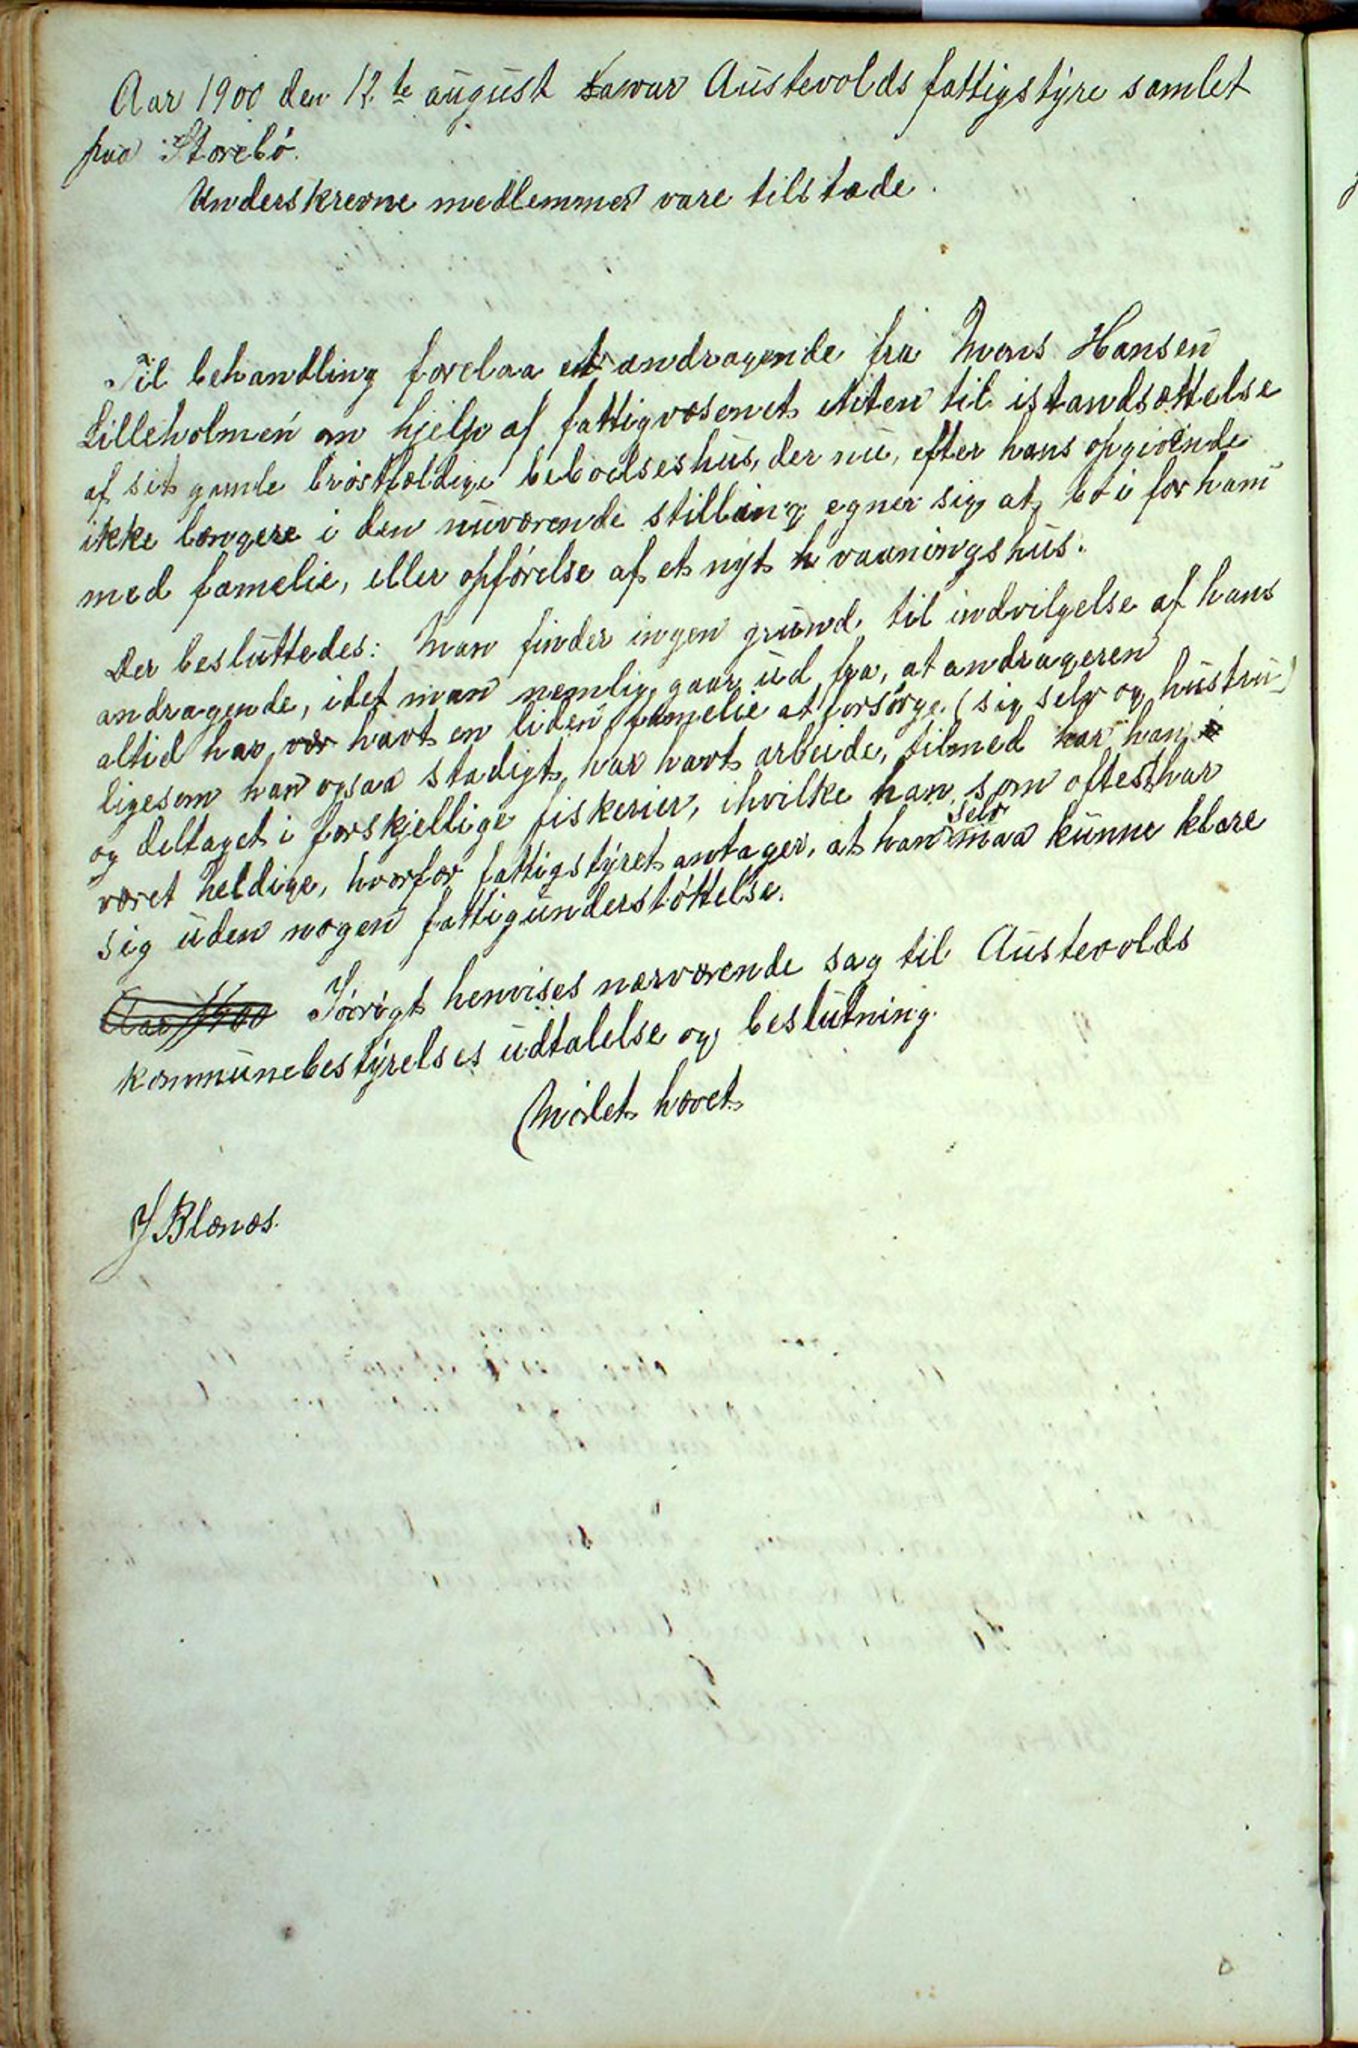 Aar 1900 den 12.te august var Austevolds fattigstyre samlet
paa Storebö.
Underskrevne medlemmer vare tilstade.
Til behandling forelaa et andragende fra Mons Hansen
Lilleholmen om hjelp af fattigvæsenet, enten til istandsættelse
af sit gamle bröstfældige beboelseshus, der nu, efter hans opgivende
ikke længere i den nuværende stilling egner sig at bo i for ham
med famelie, eller opförelse af et nyt vaaningshus.
Der besluttedes: Man finder ingen grund til indvilgelse af hans
andragende, idet man nemlig gaar ud fra, at andrageren
altid har havt en liden famelie at forsörge (sig selv og hustru)
ligesom han ogsaa stadigt har havt arbeide, tilmed har han
og deltaget i forskjellige fiskerier, ihvilke han som oftest har
været heldige, hvorfor fattigstyret antager, at han selv maa kunne klare
sig uden nogen fattigunderstöttelse.
Aar 1900 Iövrigt henvises nærværende sag til Austevolds
kommunebestyrelses udtalelse og beslutning.
Mödet hævet
J Blænæs.